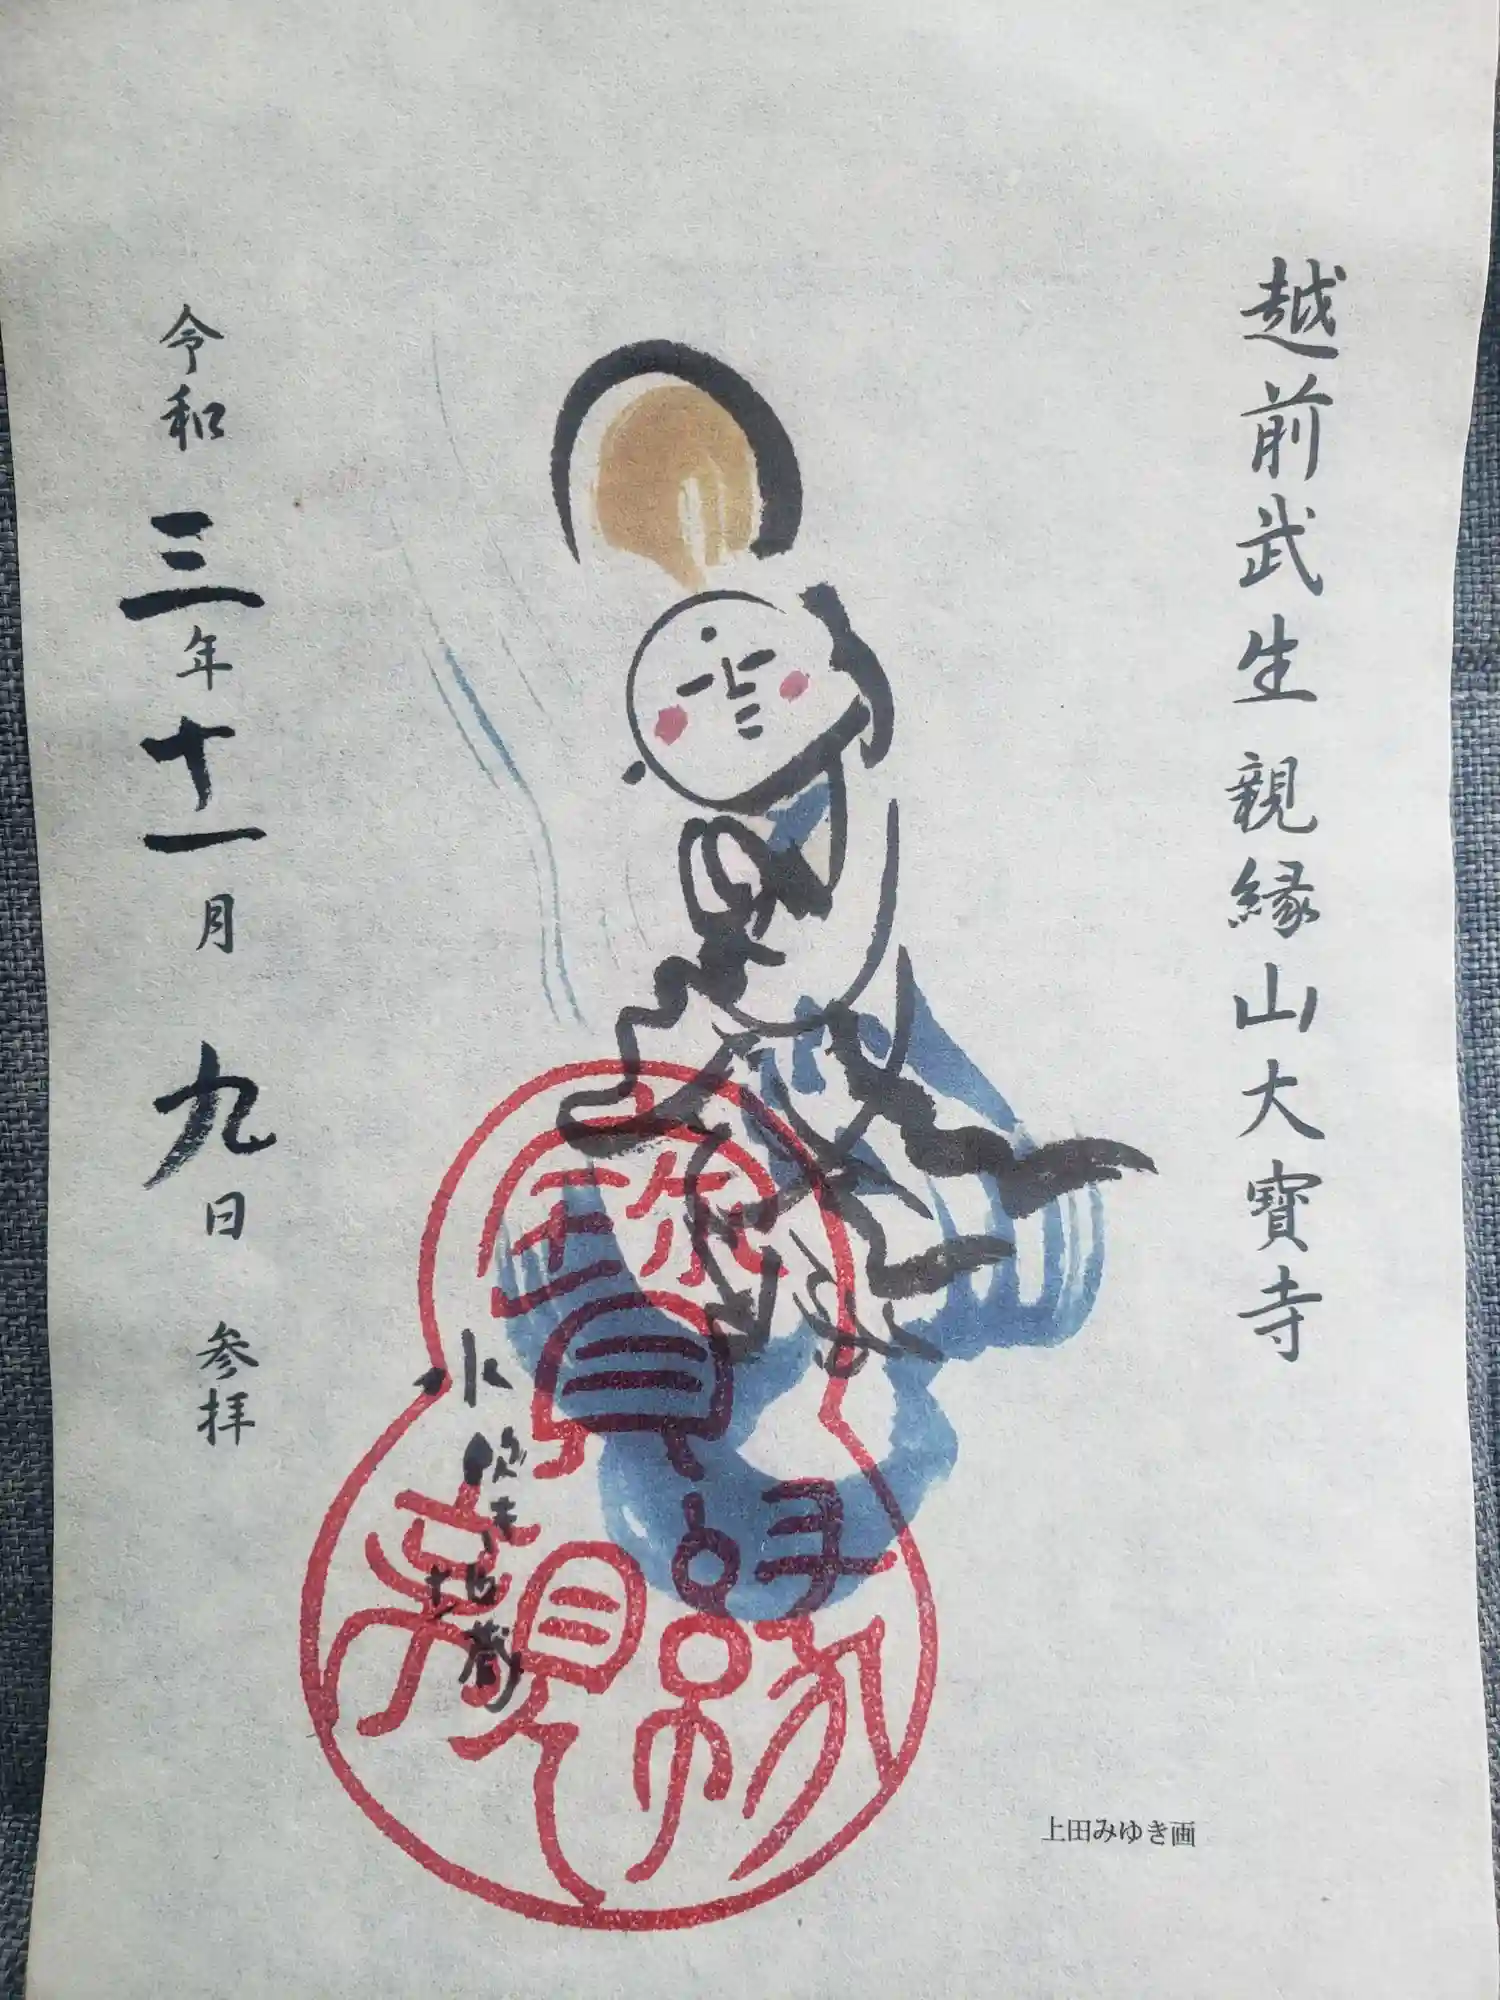 越前武生 親縁山大寳寺
令和三年十一月九日 参拝
水吹き地蔵
上田みゆき画